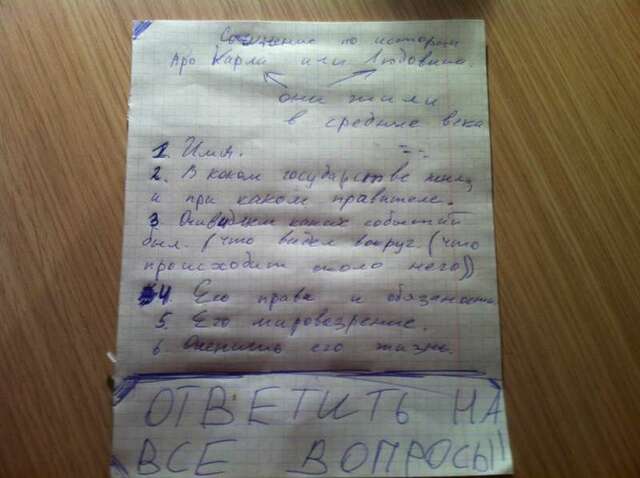 Сочинение по истории
Про Карла или Людовика.
они жили
в средние века
1. Имя.
2. В каком государстве жил
и при каком правителе.
3. Очевидцем каких событий
был. (что видел вокруг (что
происходит около него))
4. Его права и обязаности
5. Его мировозрение.
6. Оценить его жизнь.
ОТВЕТИТЬ НА
ВСЕ ВОПРОСЫ!!